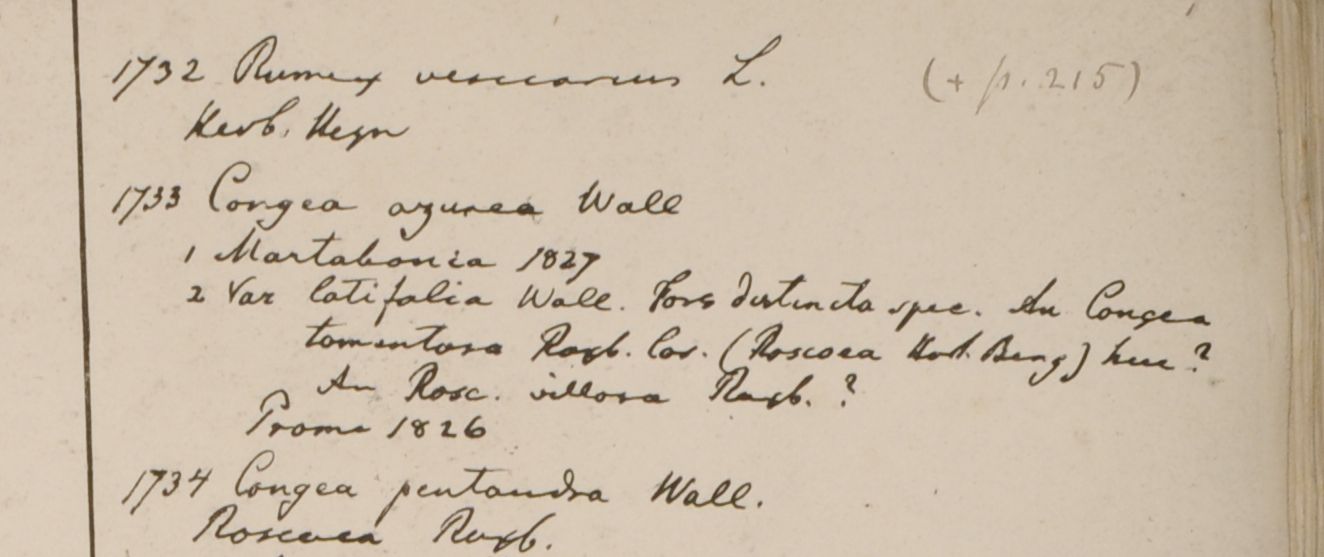 1732 Rumex vesicarius L. (+ p. 215)
Herb. Heyn
1733 Congea azurea Wall
1 Martabania 1827
2 Var latifolia Wall. Fors distincta spec. An Congea
tomentosa Roxb. Cor. (Roscoea Hort. Beng) huc ?
An Rosc. villosa Roxb. ?
Prome 1826
1734 Congea pentandra Wall.
Roscoea Roxb.